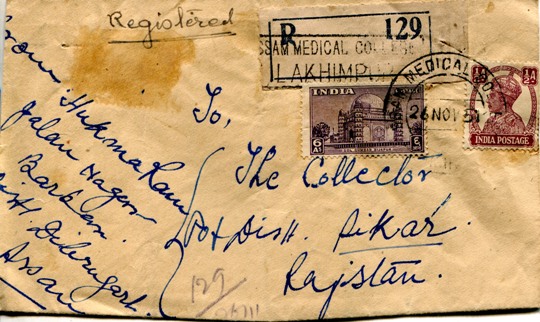 Registered
R 129
ASSAM MEDICAL COLLEGE
LAKHIMPU
MEDICAL CO
26 NOV 51
INDIA
6 As
½A
INDIA POSTAGE
From Hukma Ram
Jalan Nagar
Barbari
Dist Dibrugarh.
Assam
To,
The Collector
P.o + Dist. Sikar.
Rajstan.
129